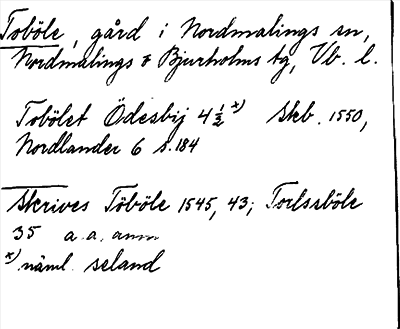 Toböle, gård i Nordmalings sn,
Nordmalings o Bjurholms tg, Vb. l.
Tobölet Ödesbij 4 ½ x) Skb. 1550,
Nordlander 6 s. 184
Skrives Töböle 1545, 43; Torlssböle
35 a. a. anm
x) näml. seland